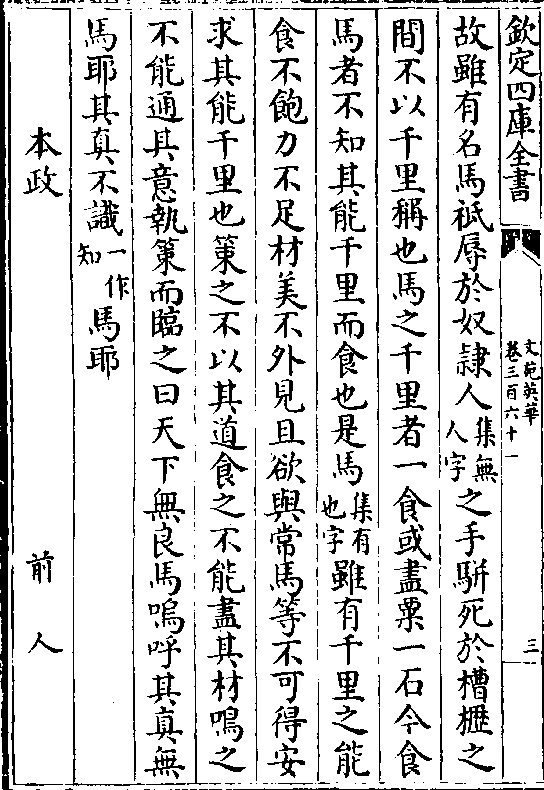 欽定四庫全書
文苑英華
卷三百六十一
三
故雖有名馬祗辱於奴隷人集無人字之手駢死於槽櫪之
間不以千里稱也馬之千里者一食或盡粟一石今食
馬者不知其能千里而食也是馬集有也字雖有千里之能
食不飽力不足材美不外見且欲與常馬等不可得安
求其能千里也策之不以其道食之不能盡其材鳴之
不能通其意執策而臨之曰天下無良馬嗚呼其真無
馬耶其真不識一作知馬耶
本政 前人